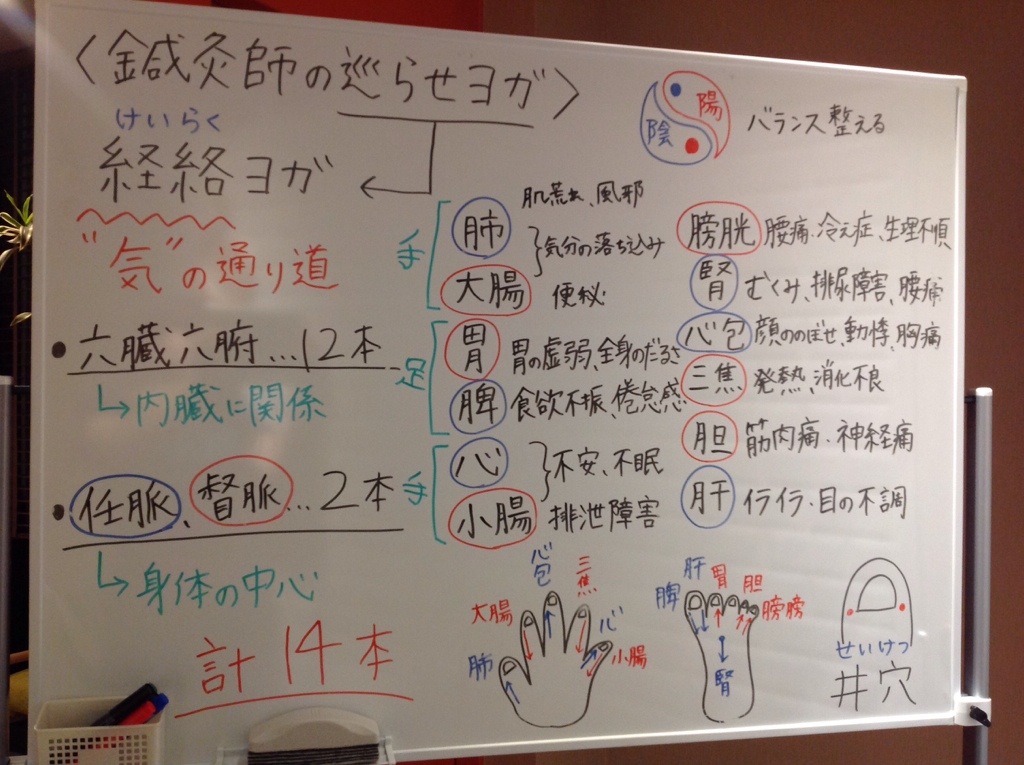 〈鍼灸師の巡らせヨガ〉
けいらく
経絡ヨガ
"気"の通り道
・六臓六腑…12本
↳内臓に関係
・任脈、督脈…2本
↳身体の中心
計 14本
陰 陽 バランス整える
手
肺 肌荒れ、風邪
}気分の落ち込み
大腸 便秘
足
胃 胃の虚弱、全身のだるさ
脾 食欲不振、倦怠感
手
心
}不安、不眠
小腸 排泄障害
膀胱 腰痛、冷え症、生理不順
腎 むくみ、排尿障害、腰痛
心包 顔ののぼせ、動悸、胸痛
三焦 発熱、消化不良
胆 筋肉痛、神経痛
肝 イライラ・目の不調
肺
大腸
心包
三焦
心
小腸
脾
肝
胃
胆
膀膀
腎
せいけつ
井穴